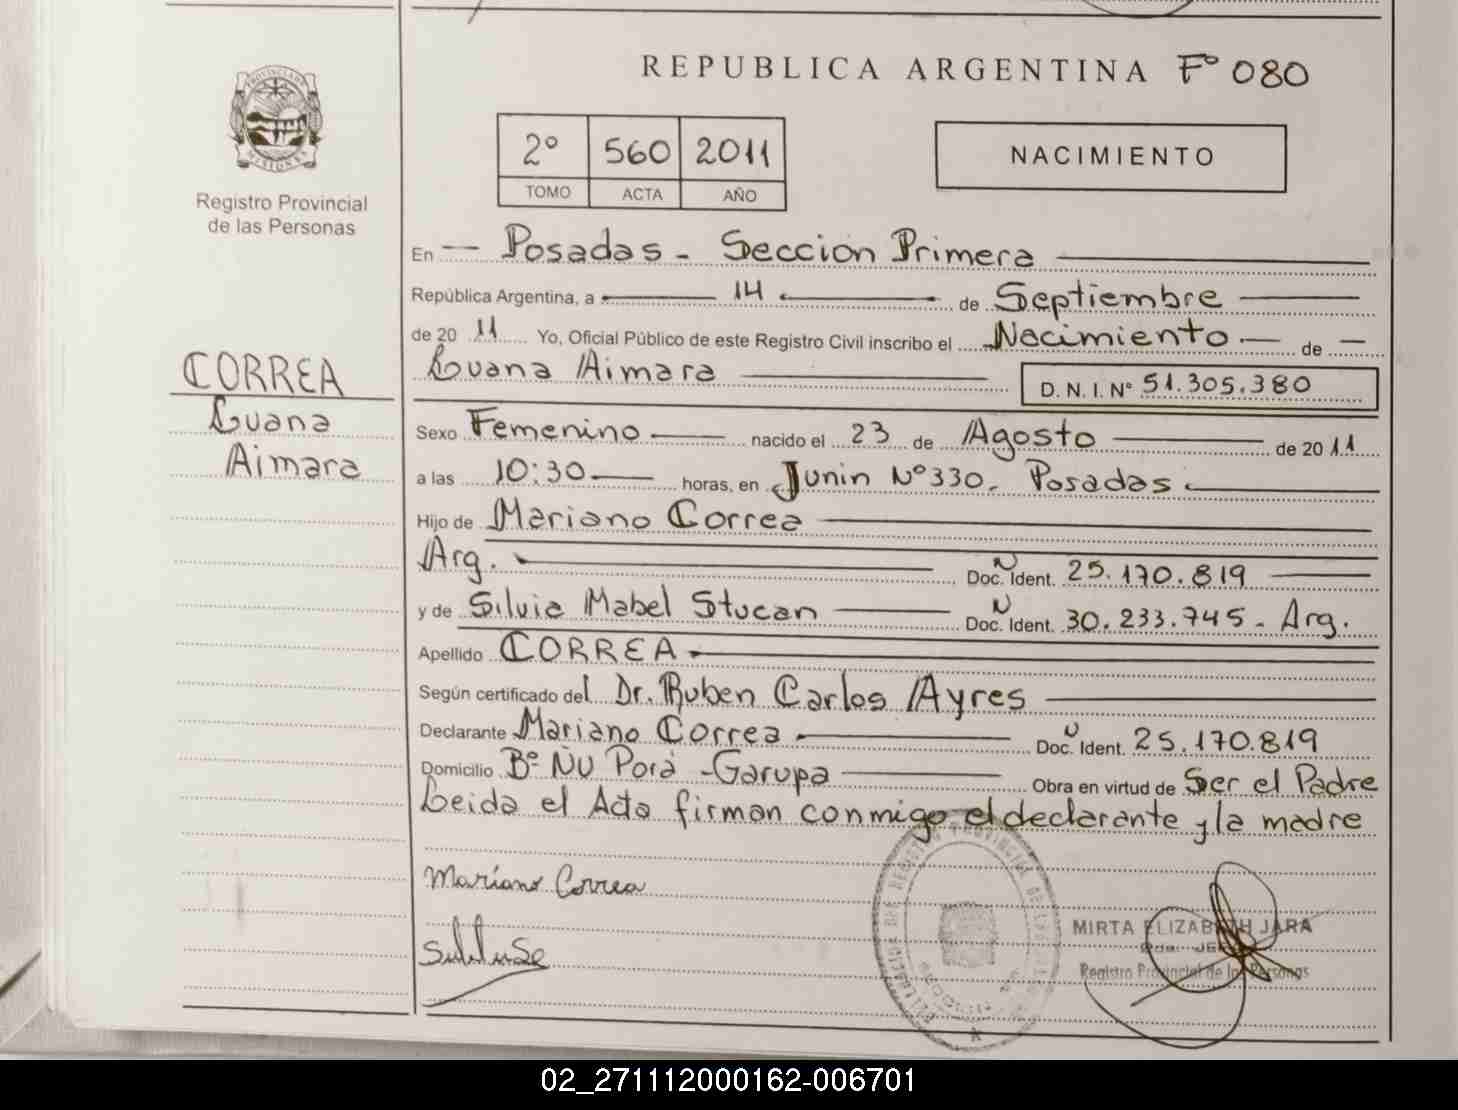 REPUBLICA ARGENTINA Fº 080
PROVINCIA DE
MISIONES
Registro Provincial
de las Personas
2º 560 2011
TOMO ACTA AÑO
NACIMIENTO
En — Posadas - Sección Primera
República Argentina, a 14 de Septiembre
de 20 11 Yo, Oficial Público de este Registro Civil inscribo el Nacimiento — de —
Luana Aimara D. N. I. Nº 51.305.380
CORREA
Luana
Aimara
Sexo Femenino nacido el 23 de Agosto de 20 11
a las 10:30 horas, en Junin Nº 330. Posadas
Hijo de Mariano Correa
Arg. Doc. Ident. 25.170.819
y de Silvia Mabel Stucan Doc. Ident. 30.233.745 - Arg.
Apellido CORREA
Según certificado del Dr. Ruben Carlos Ayres
Declarante Mariano Correa Doc. Ident. 25.170.819
Domicilio Bº Ñu Porá - Garupa Obra en virtud de Ser el Padre
Leida el Acta firman conmigo el declarante y la madre
Mariano Correa
MIRTA ELIZABETH JARA
Registro Provincial de las Personas
02_271112000162-006701